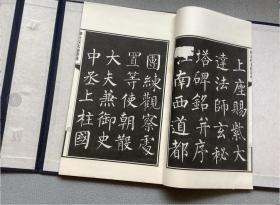 上座賜紫大
達法師玄秘
塔碑銘并序
江南西道都
團練觀察處
置等使朝散
大夫兼御史
中丞上柱國